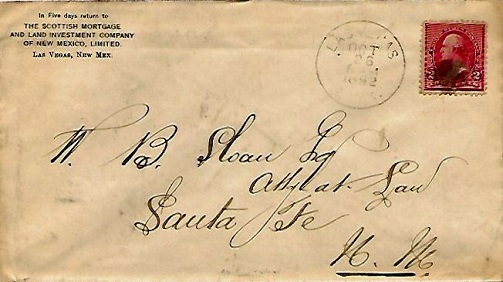 In Five days return to
THE SCOTTISH MORTGAGE
AND LAND INVESTMENT COMPANY
OF NEW MEXICO, LIMITED.
LAS VEGAS, NEW MEX.
LAS VEGAS
OCT
26
1892
2 2
W. B. Sloan Esq
Atty at Law
Santa Fe
N. M.